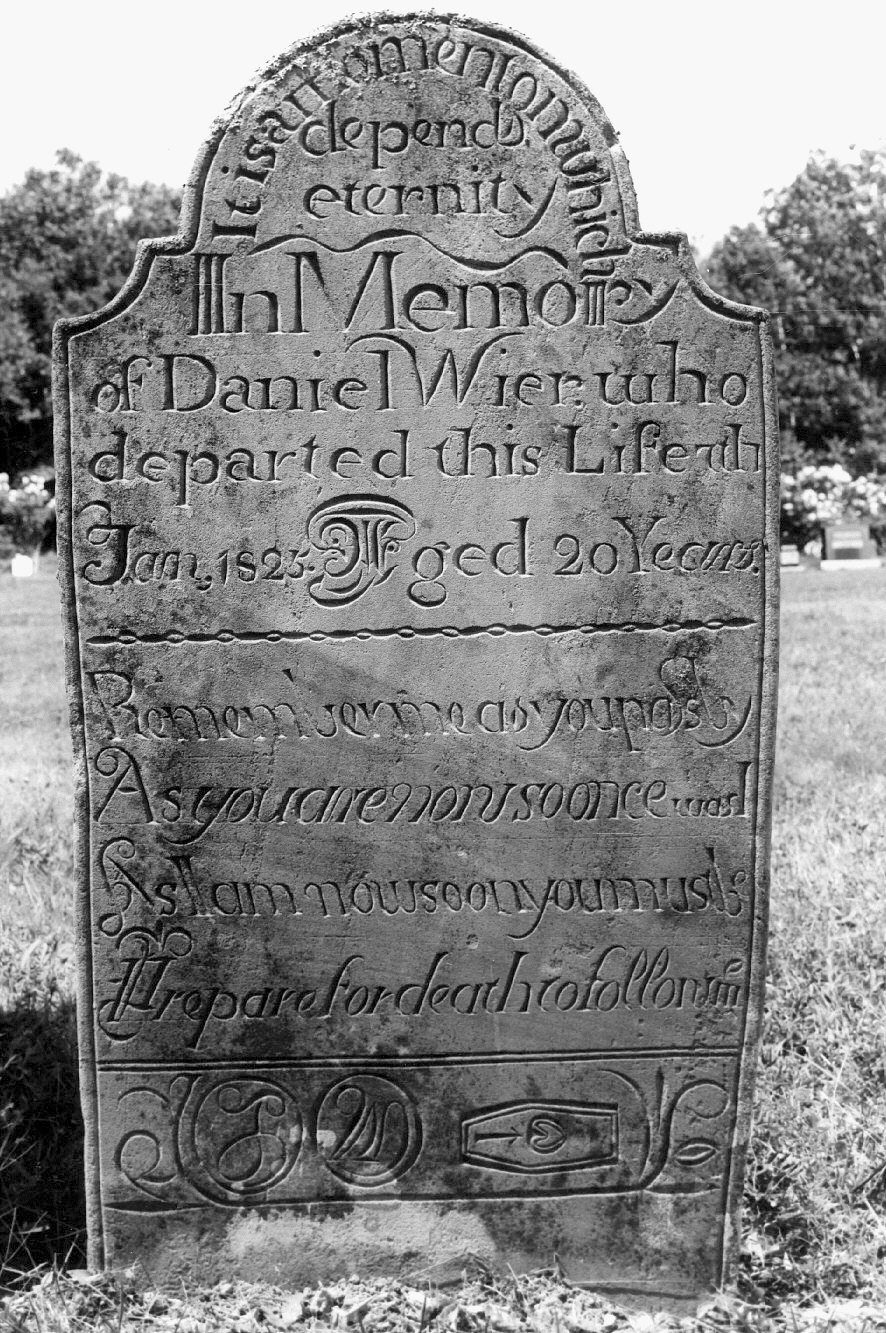 It is a moment on which
depend
eternity
In Memory
of Daniel Wier. who
departed this Life 7th
Jan. 1825. Aged 20 Years.
Remember me as you pass by
As you are now so once was I
As I am now so you must be
Prepare for death to follow me